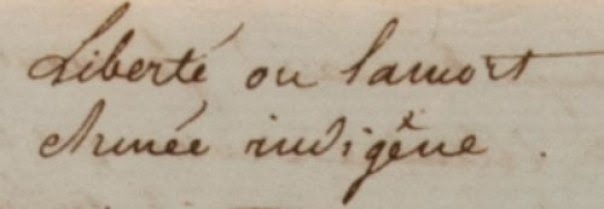 Liberté ou lamort
Armée indigêne .